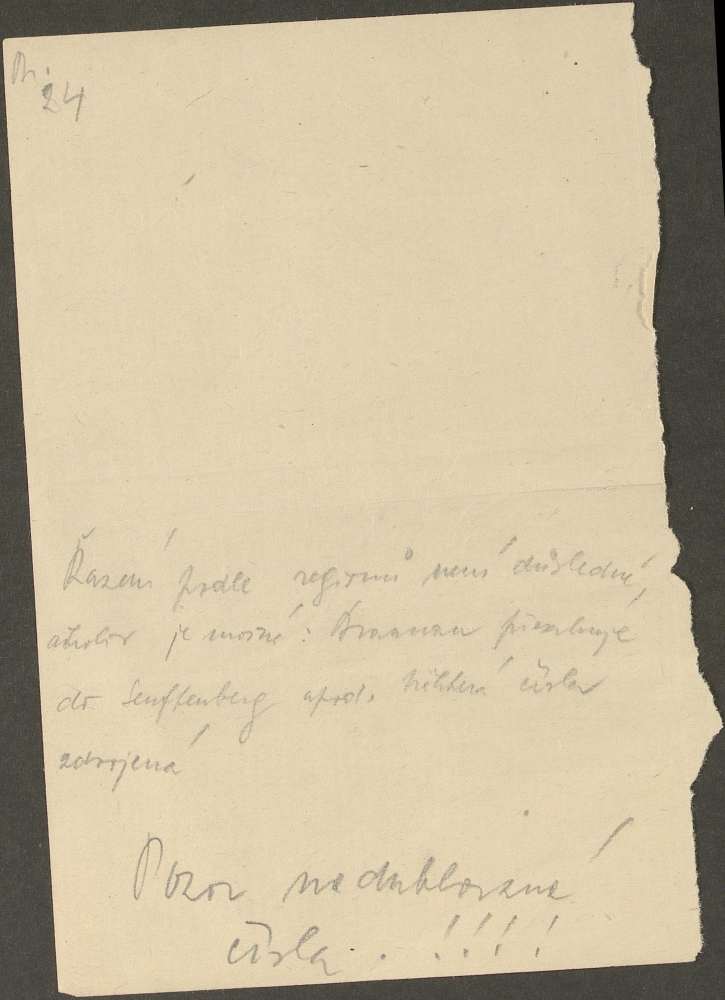 Pr.
24
Řazení podle regionů není důsledné,
ačkoliv je možné: Braunau přesahuje
do Senftenberg apod. Některá čísla
zdvojená
Pozor na dublované
čísla . !!!!